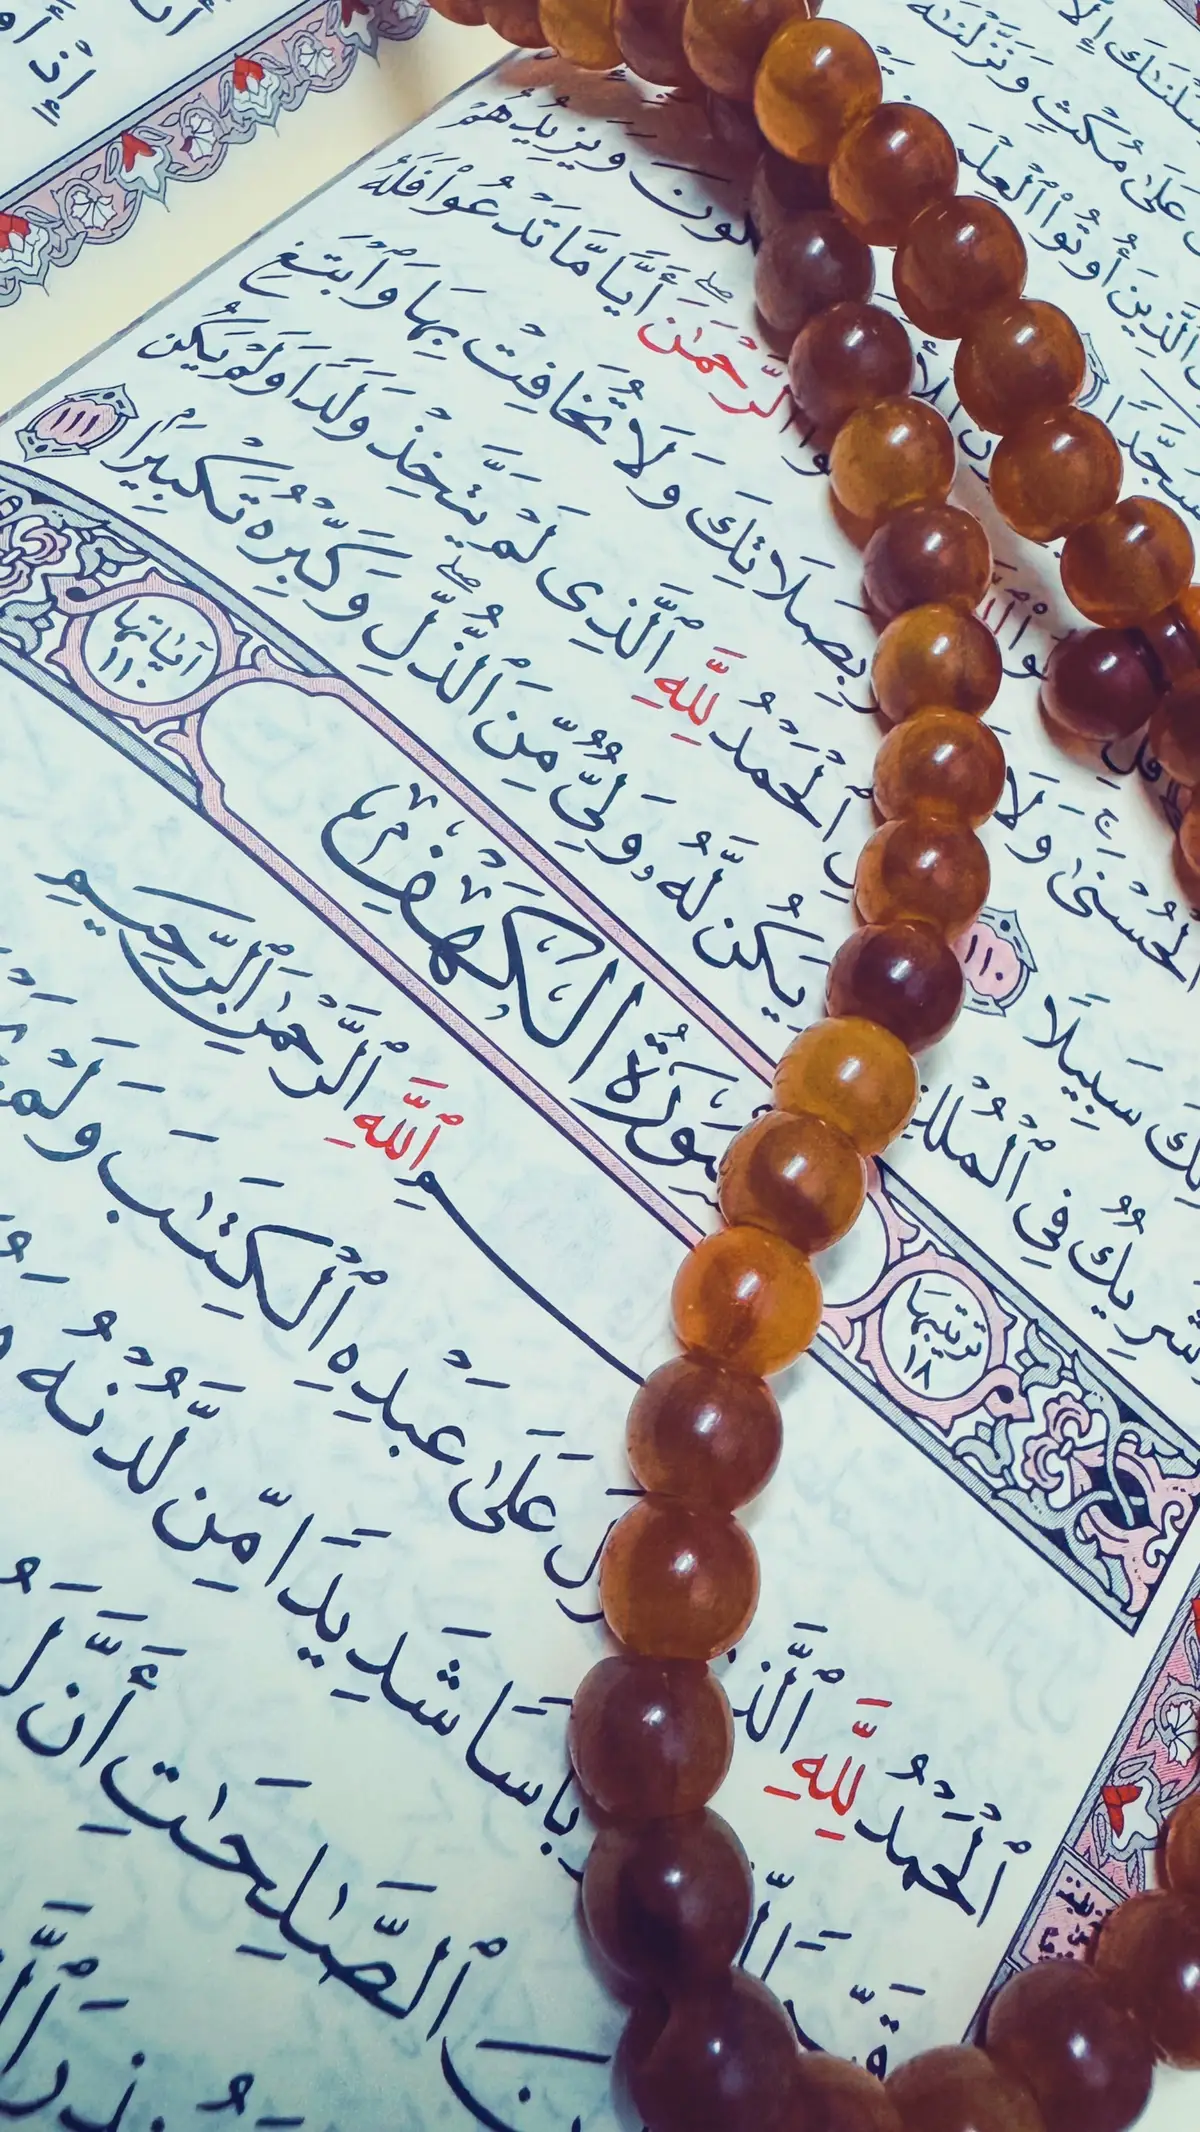 إِلَّا
عَلَىٰ مُكْثٍ وَنَزَّلْنَٰهُ
ٱلَّذِينَ أُوتُوا۟ ٱلْعِلْمَ
سُجَّدًا
وَيَزِيدُهُمْ
ٱلرَّحْمَٰنَ ۖ أَيًّا مَّا تَدْعُوا۟ فَلَهُ
ٱلْحُسْنَىٰ ۚ وَلَا بِصَلَاتِكَ وَلَا تُخَافِتْ بِهَا وَٱبْتَغِ
سَبِيلًا ١١٠ ٱلْحَمْدُ لِلَّهِ ٱلَّذِى لَمْ يَتَّخِذْ وَلَدًا وَلَمْ يَكُن
شَرِيكٌ فِى ٱلْمُلْكِ يَكُن لَّهُۥ وَلِىٌّ مِّنَ ٱلذُّلِّ ۖ وَكَبِّرْهُ تَكْبِيرًا ١١١
ترتيبها ١٨
سُورَةُ الكَهْفِ
آياتها ١١٠
ٱللَّهِ ٱلرَّحْمَٰنِ ٱلرَّحِيمِ
ٱلْحَمْدُ لِلَّهِ عَلَىٰ عَبْدِهِ ٱلْكِتَٰبَ وَلَمْ
بَأْسًا شَدِيدًا مِّن لَّدُنْهُ
ٱلصَّٰلِحَٰتِ أَنَّ